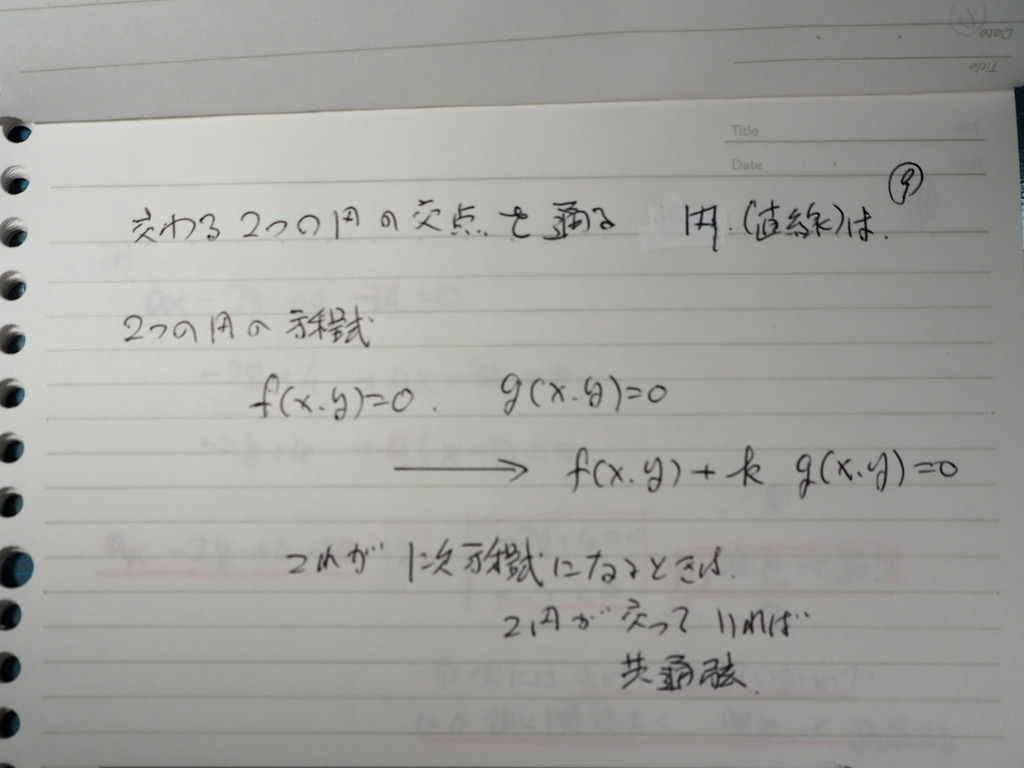 Date
Title
Title
Date
⑨
交わる2つの円の交点を通る 円.(直線)は.
2つの円の方程式
f(x.y)=0. g(x.y)=0
→ f(x.y) + k g(x.y)=0
これが 1次方程式になるときは.
2円が交っていれば
共通弦.